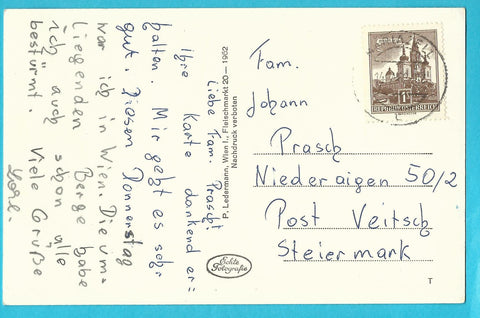 Liebe Fam. Prasch!
Ihre Karte dankend er=
halten. Mir geht es sehr
gut. Diesen Donnerstag
war ich in Wien. Die um=
liegenden Berge habe
ich auch schon alle
bestürmt. Viele Grüße
P. Ledermann, Wien I., Fleischmarkt 20 — 1962
Nachdruck verboten
Echte
Fotografie
Fam.
Johann
Prasch
Niederaigen 50/2
Post Veitsch
Steiermark
REPUBLIK ÖSTERREICH
T